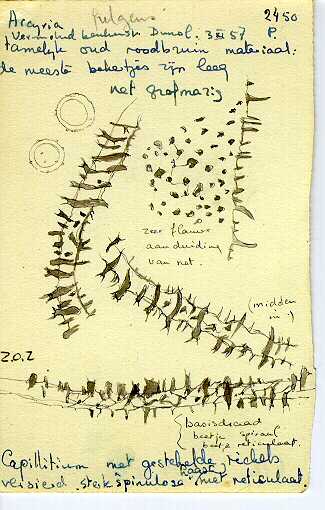 Arcyria fulgens 2450
Vermolmd beukenhout Dunol. 3 XI 57 P.
tamelijk oud roodbruin materiaal:
de meeste bekertjes zijn leeg
net grofmazig
zeer flauwe
aanduiding
van net.
(midden
in:)
Z.O.Z
basisdraad
beetje spiraal
beetje reticulaat.
Capillitium met gestekelde richels
versierd. sterk spinulose naast met reticulaat.